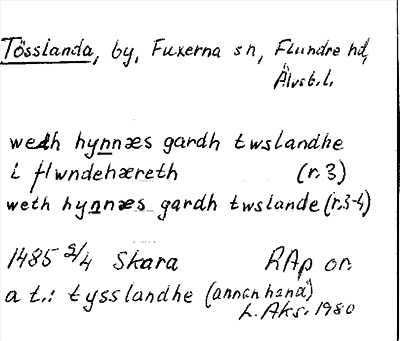 Tösslanda, by, Fuxerna sn, Flundre hd,
Älvsb.l.
wedh hynnæs gardh twslandhe
i flwndehæreth (r.3)
weth hynnæs gardh twslande (r.3-4)
1485 5/4 Skara RAp or.
a t.: tysslandhe (annan hand)
L. Aks. 1980